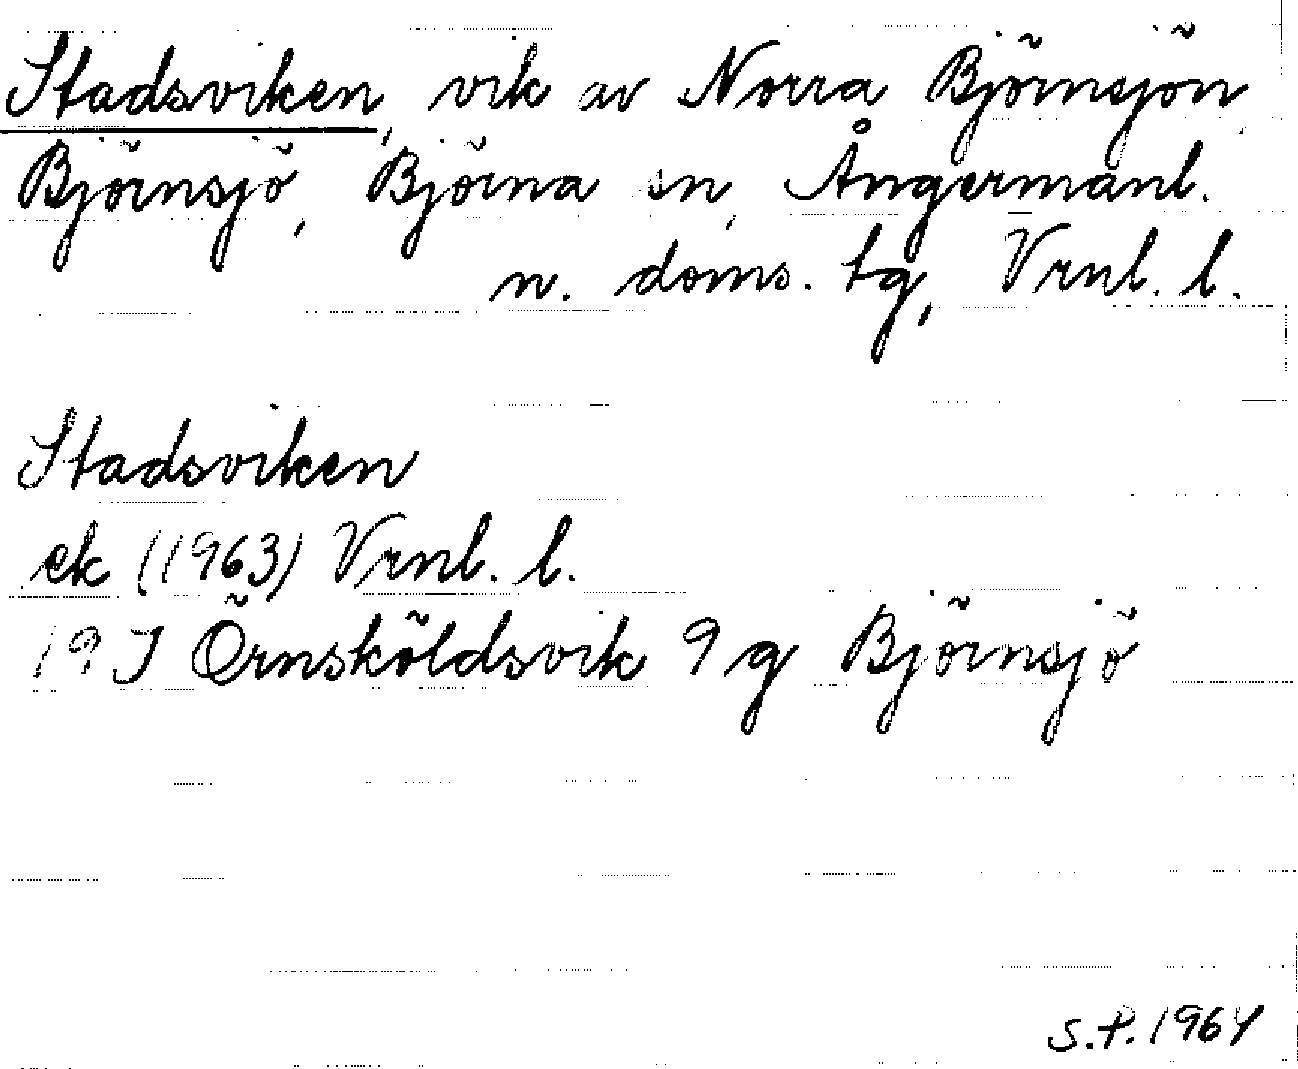 Stadsviken, vik av Norra Björnsjön,
Björnsjö, Björna sn, Ångermanl.
n. doms. tg, Vrnl. l.
Stadsviken
ek (1963) Vrnl. l.
19 J Örnsköldsvik 9 g Björnsjö
S.P. 1964